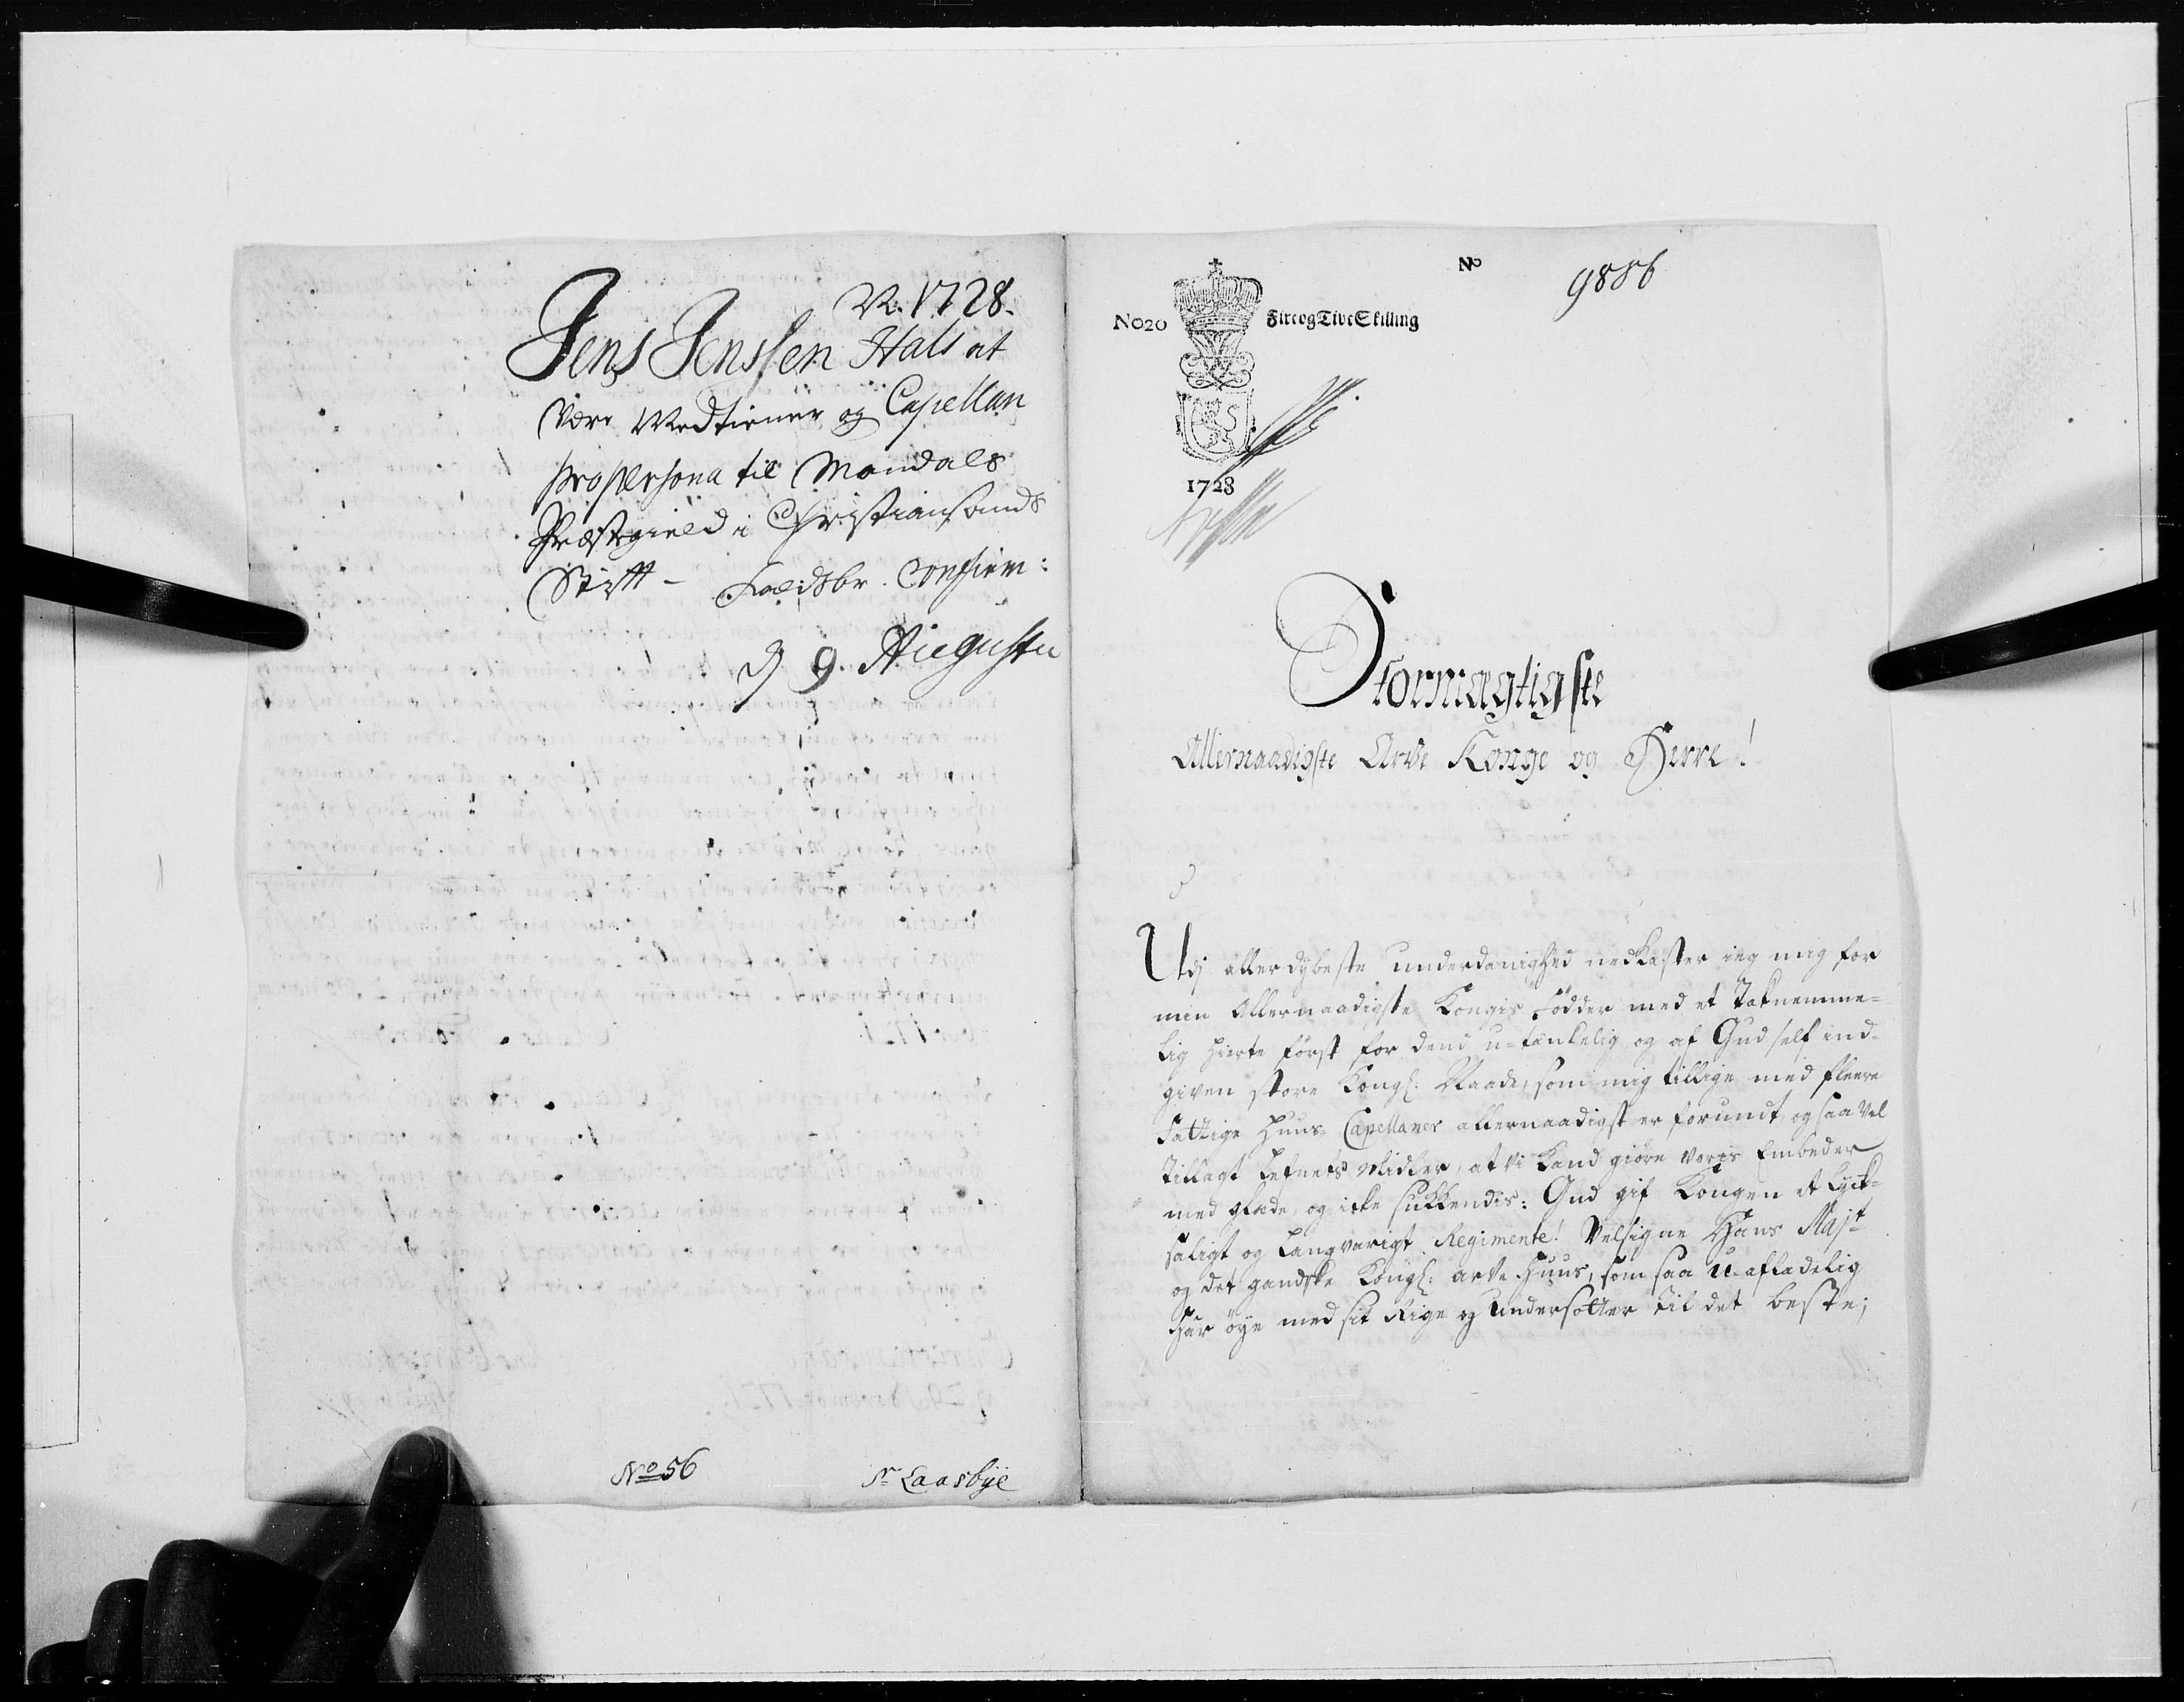 N. 1728.
Jens Jenssen Hals at
være Medtiener og Capellan
pro persona til Mandals
Præstegield i Christiansands
Stift - Fridsbr. Confirm:
d 9. Augusti
No 56
Sr Laasbÿe
No
9886
No20
FireogTiveSkilling
1728
Stormægtigste
Allernaadigste Arve Konge og Herre!
Udj allerdybeste underdanighed nedkaster ieg mig for
min Allernaadigste Kongis fødder med et Taknemme-
lig hierte først for dend u-tænkelig og af Gud self ind-
given store Kongl: Naade, som mig tillige med fleere
Fattige Huus-Capellaner allernaadigst er forundt, og saa vel
tillagt Lefnets Midler, at vi kand giøre voris Embeder
med glæde, og icke suckendis: Gud gif Kongen et lyck-
saligt og langvarigt Regimente! Velsigne Hans Majt
og det gandske Kongl: arve Huus, som saa u-afladelig
har øye med sit Rige og Undersotter til det beste;